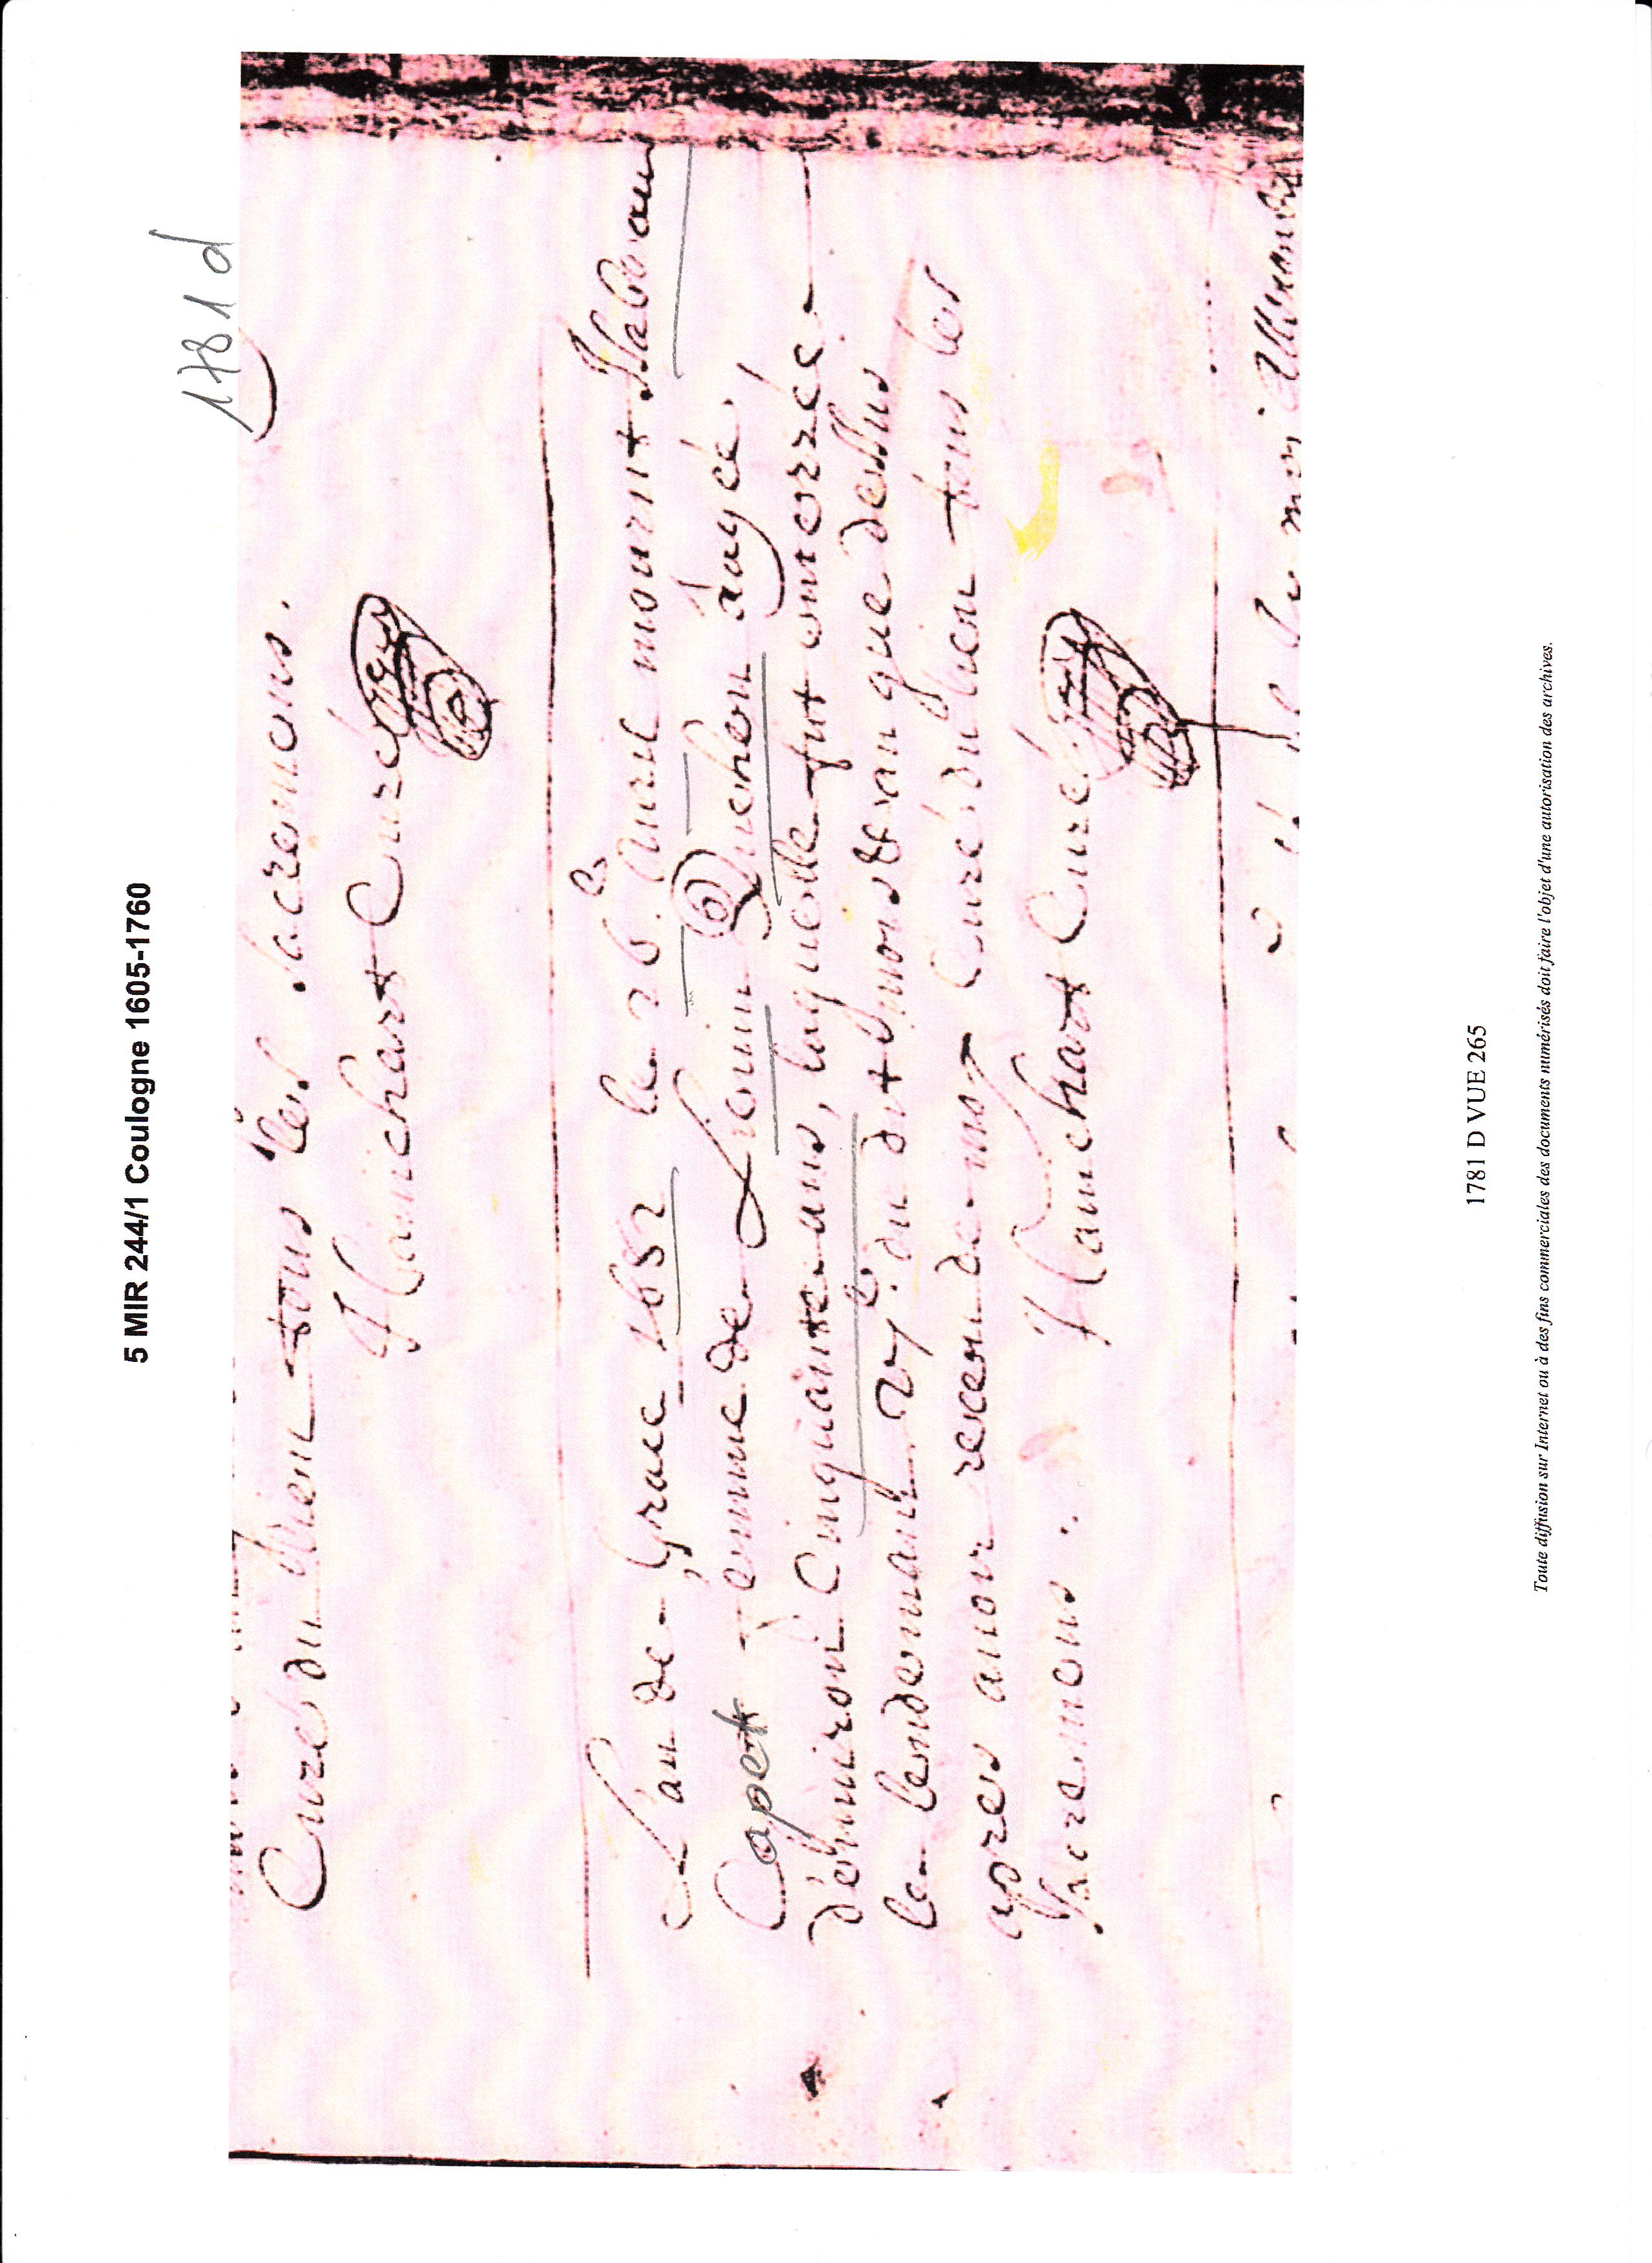 5 MIR 244/1 Coulogne 1605-1760
1781 d
Curé du dit lieu tous les sacremens.
Hauichart Curé
L'an de Grace 1652 le 26.e Auril mourut Isabeau
Capet femme de Louin Quehen aagée
d'enuiron Cinquante ans, laquelle fut enterrée
le lendemain du dit mois et an que dessus
apres auoir receu de moy Curé du lieu tous les
sacremens.
Hauichart Curé
1781 D VUE 265
Toute diffusion sur Internet ou à des fins commerciales des documents numérisés doit faire l'objet d'une autorisation des archives.